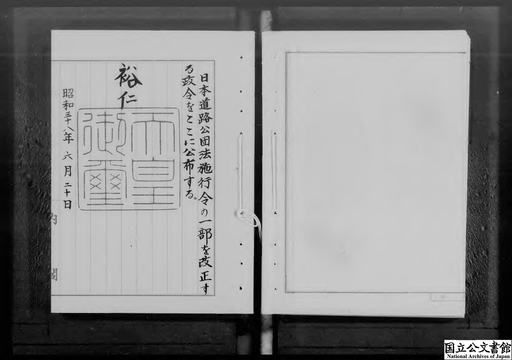 日本道路公団法施行令の一部を改正す
る政令をここに公布する
裕仁
天皇
御璽
昭和三十八年六月二十日
内閣
国立公文書館
National Archives of Japan